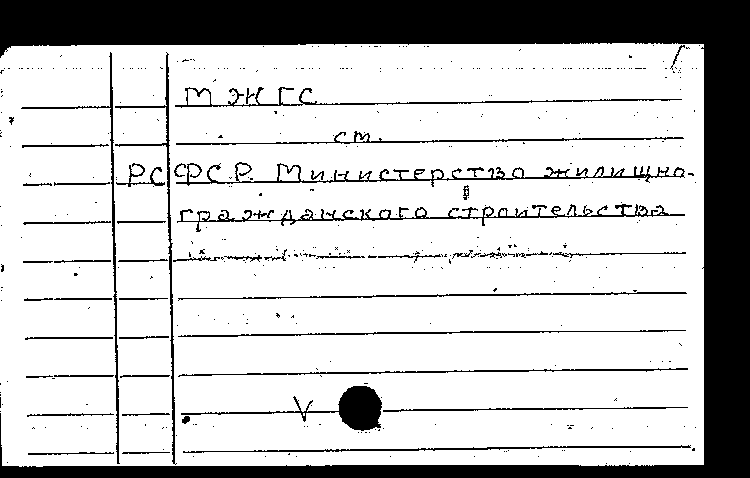 МЖГС
ст.
РСФСР. Министерство жилищно-
гражданского строительства
V